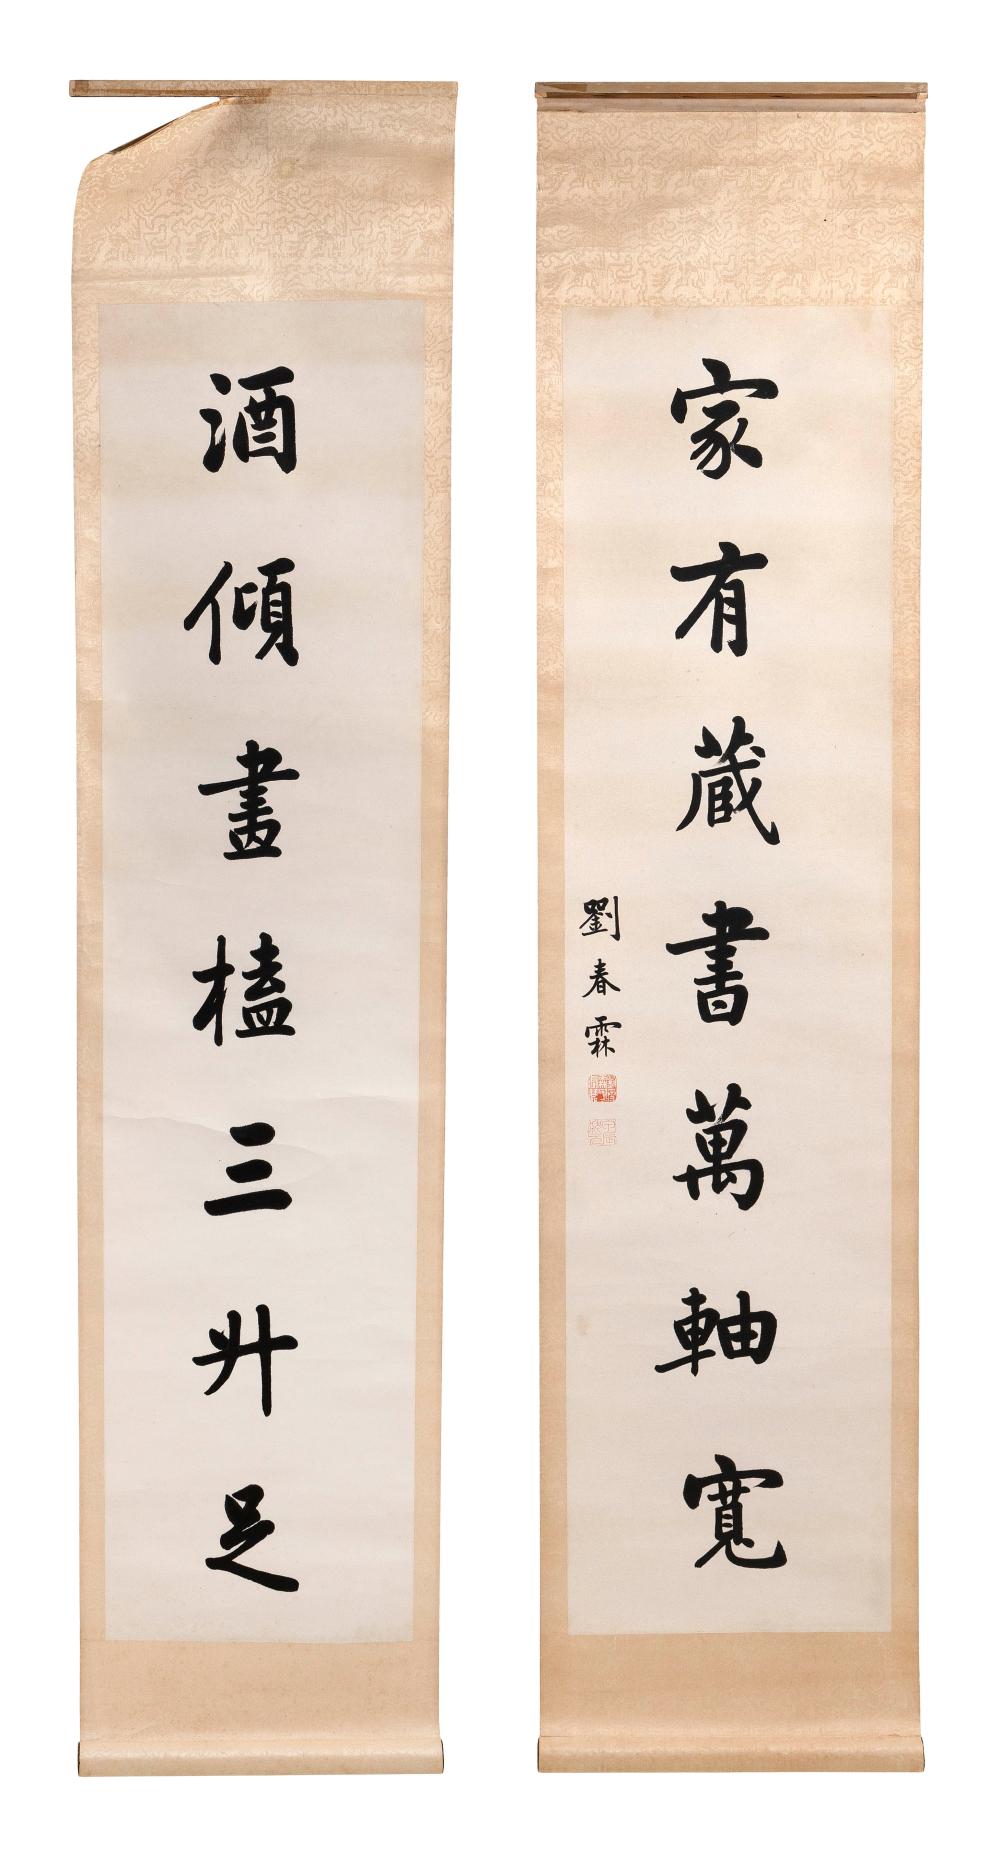 家有蔵書萬軸寬
劉春霖
酒傾畫榼三升足